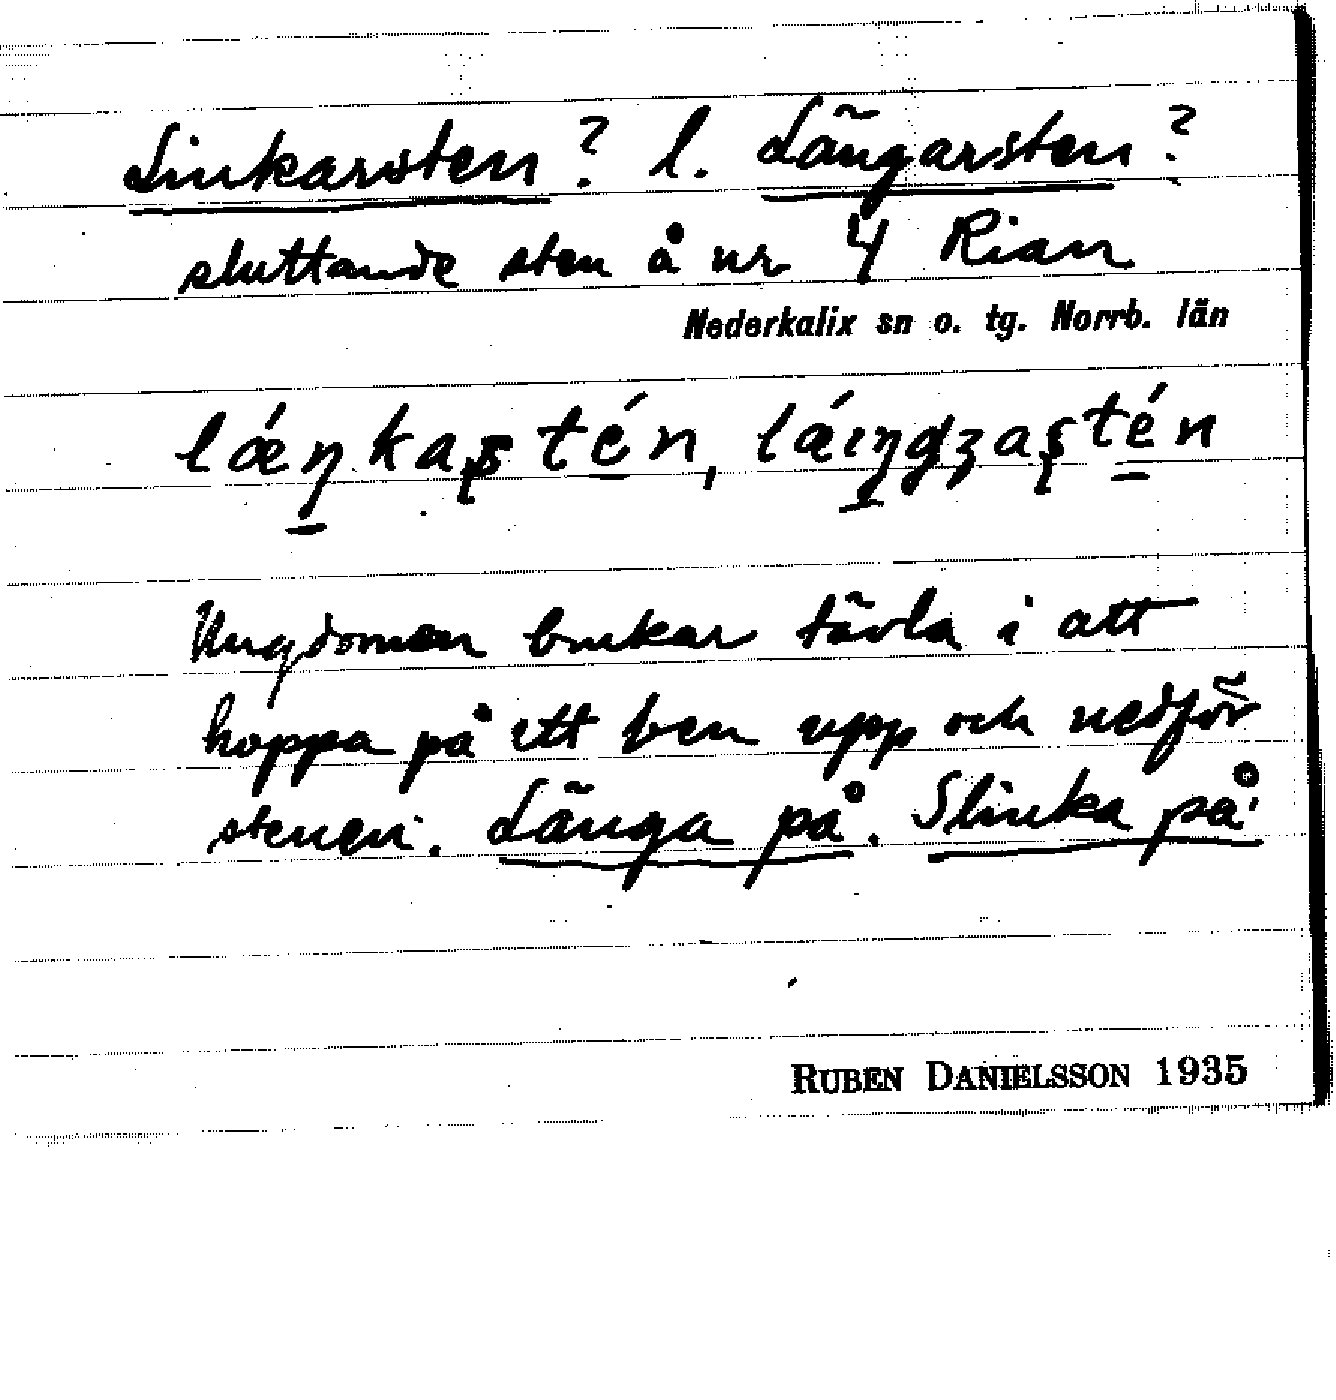 Linkarsten? l. Längarsten?
sluttande sten å nr 4 Rian
Nederkalix sn o. tg. Norrb. län
lǽŋkaʂtén, lǽıŋgʒaʂtén
Ungdomen brukar tävla i att
hoppa på ett ben upp och nedför
stenen. Länga på. Slinka på.
RUBEN DANIELSSON 1935